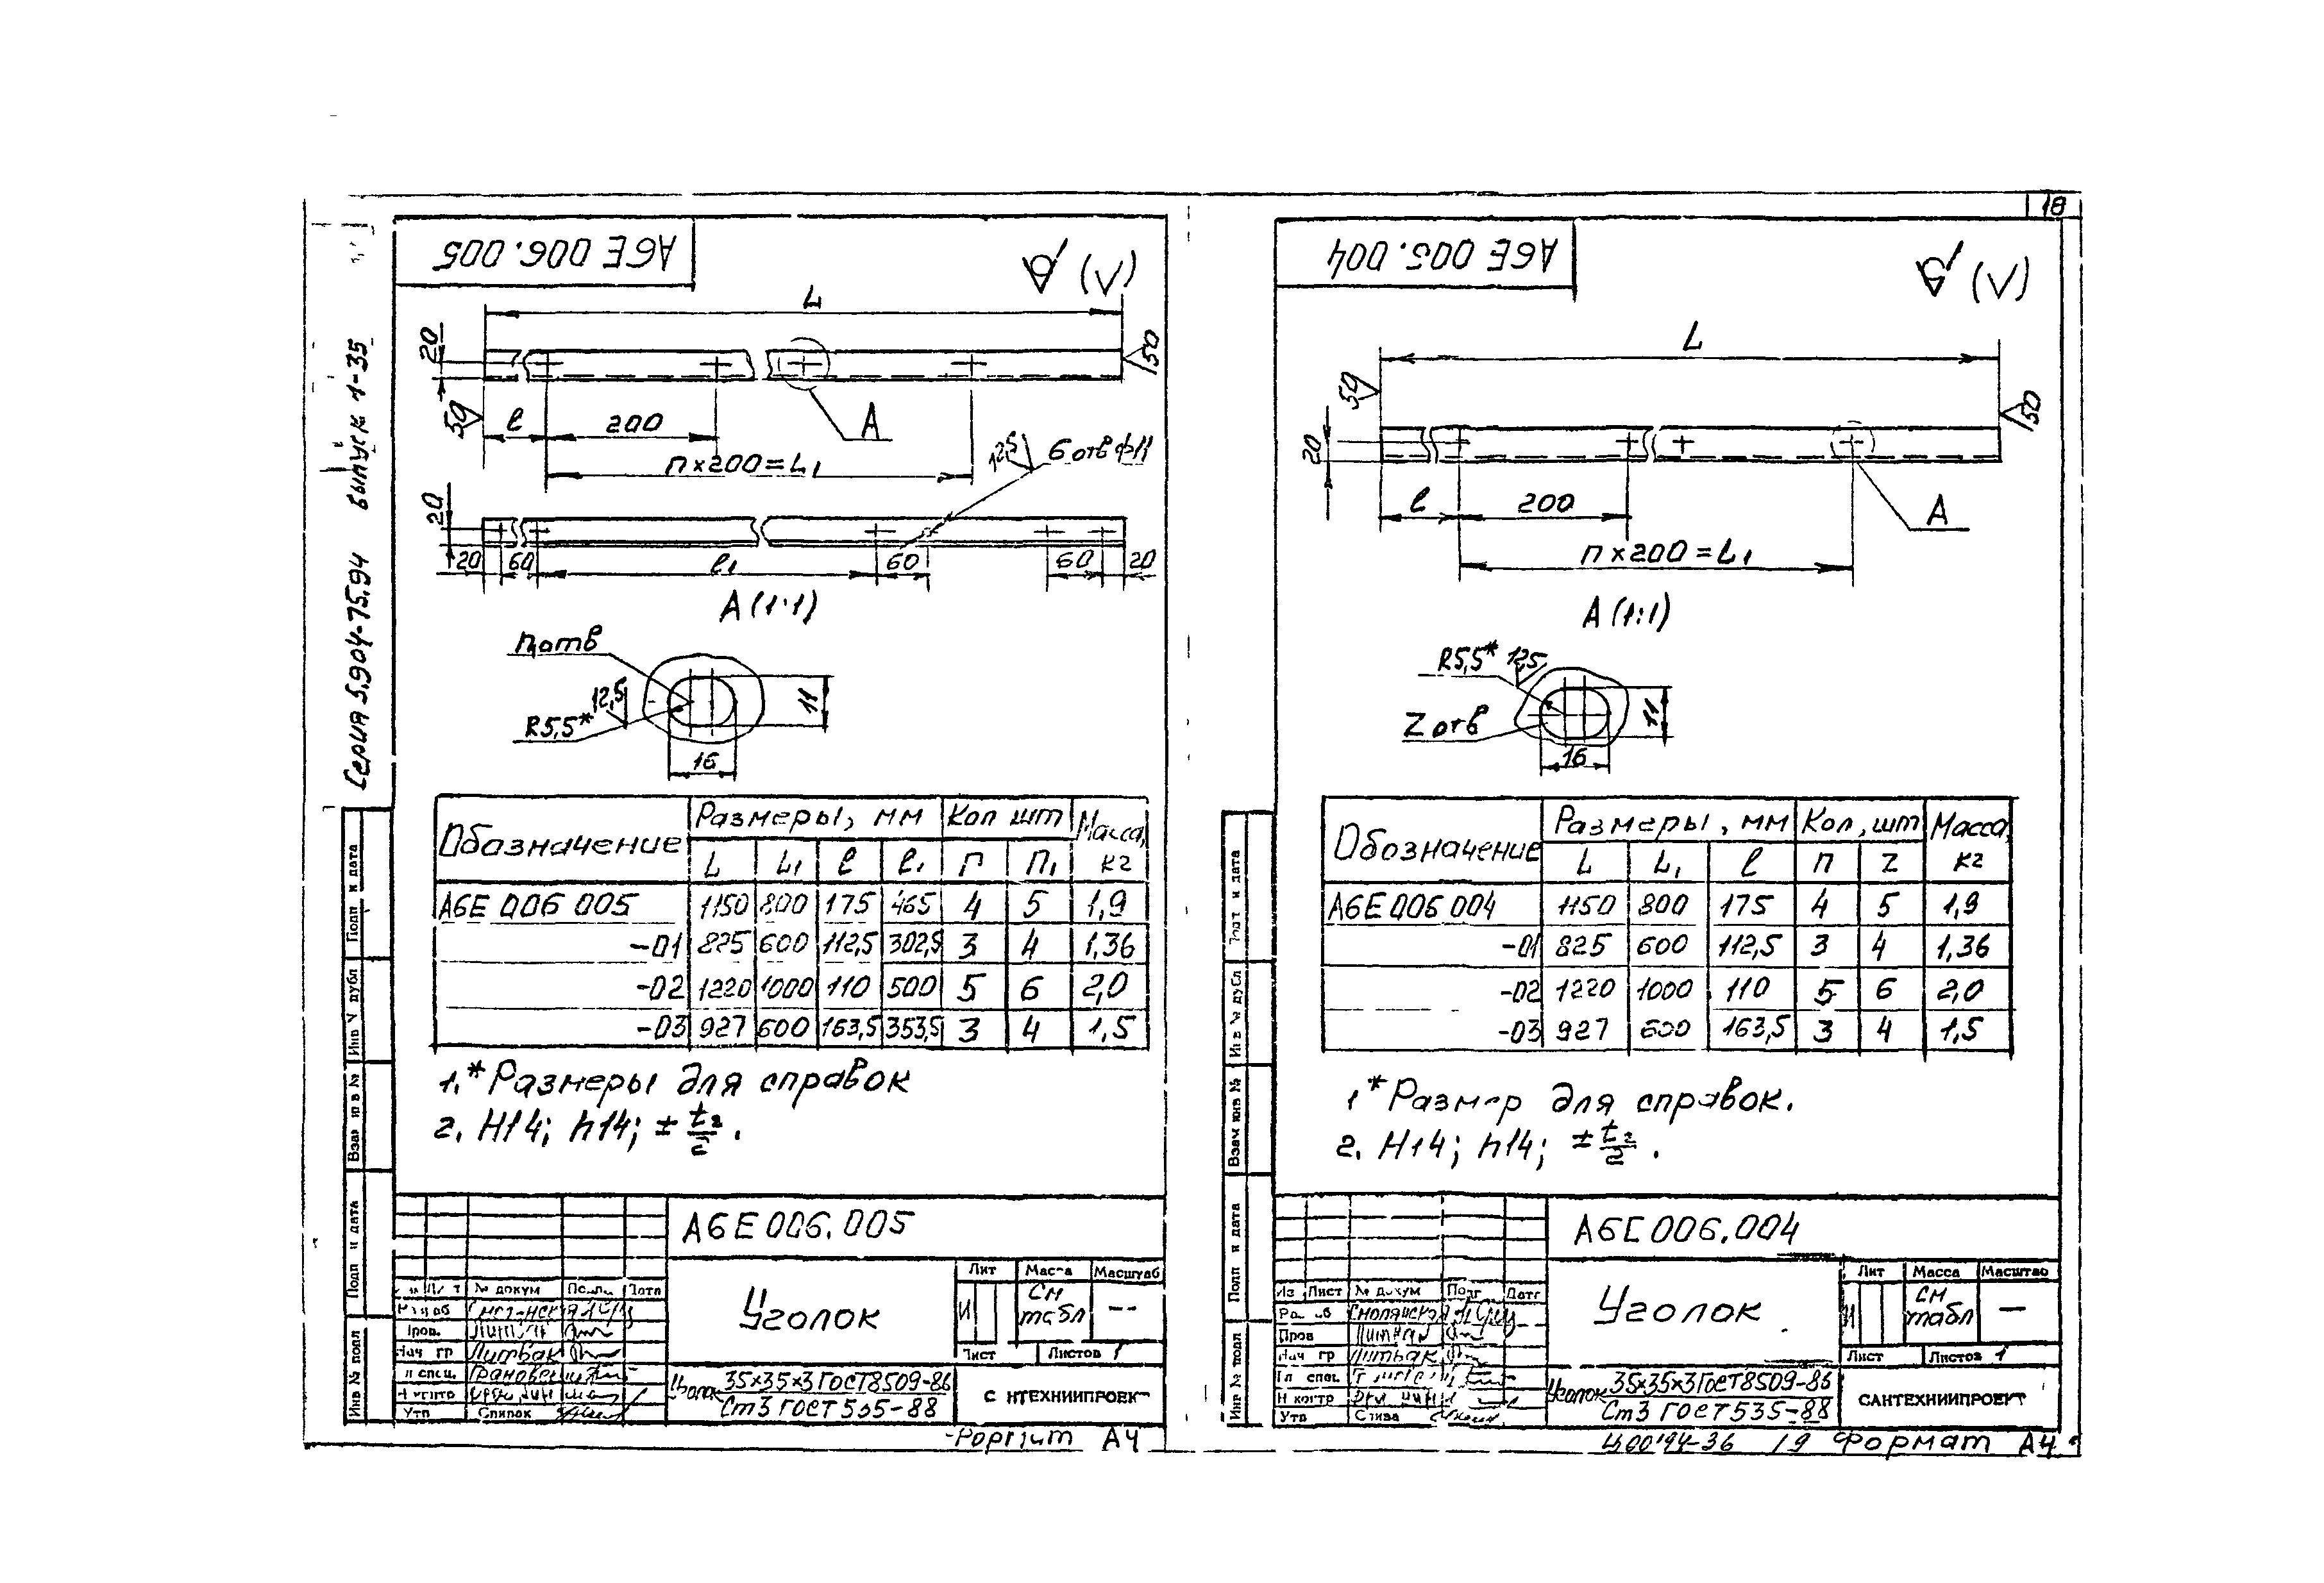 18
Серия 5.904-75.94 выпуск 1-35
А6Е 006.005
(√)
L
20
50
50
ℓ
200
А
п×200=L₁
12,5
6 отв ф11
20
20
60
ℓ₁
60
60
20
А (1:1)
п₁ отв
12,5
R5,5*
11
16
Обозначение
Размеры, мм
Кол шт
Масса, кг
L L₁ ℓ ℓ₁ п п₁
А6Е 006 005 1150 800 175 465 4 5 1,9
-01 825 600 112,5 302,5 3 4 1,36
-02 1220 1000 110 500 5 6 2,0
-03 927 600 163,5 353,5 3 4 1,5
1.* Размеры для справок
2. Н14; h14; ± t₂/2.
Подп и дата
Инв № дубл
Взам инв №
Подп и дата
Инв № подл
А6Е 006.005
№ докум
Дата
Пров.
Нач гр
Литвак
Н контр
Утв
Уголок
Лит
Масса
Масштаб
И
См табл
--
Лист
Листов 1
Уголок 35×35×3 ГОСТ 8509-86
Ст3 ГОСТ 535-88
С НТЕХНИИПРОЕКТ
Формат А4
А6Е 006.004
(√)
L
50
50
20
ℓ
200
А
п×200=L₁
А (1:1)
R5,5*
12,5
Z отв
11
16
Обозначение
Размеры, мм
Кол, шт
Масса, кг
L L₁ ℓ п Z
А6Е 006 004 1150 800 175 4 5 1,9
-01 825 600 112,5 3 4 1,36
-02 1220 1000 110 5 6 2,0
-03 927 600 163,5 3 4 1,5
1* Размер для справок.
2. Н14; h14; ± t₂/2.
Подп и дата
Инв № дубл
Взам инв №
Подп и дата
Инв № подл
А6Е 006.004
Из Лист № докум Подп Дата
Пров
Нач гр Литвак
Гл спец.
Н контр
Утв
Уголок
Лит
Масса
Масштаб
И
См табл
—
Лист
Листов 1
Уголок 35×35×3 ГОСТ 8509-86
Ст3 ГОСТ 535-88
САНТЕХНИИПРОЕКТ
Ц00194-36 19 Формат А4